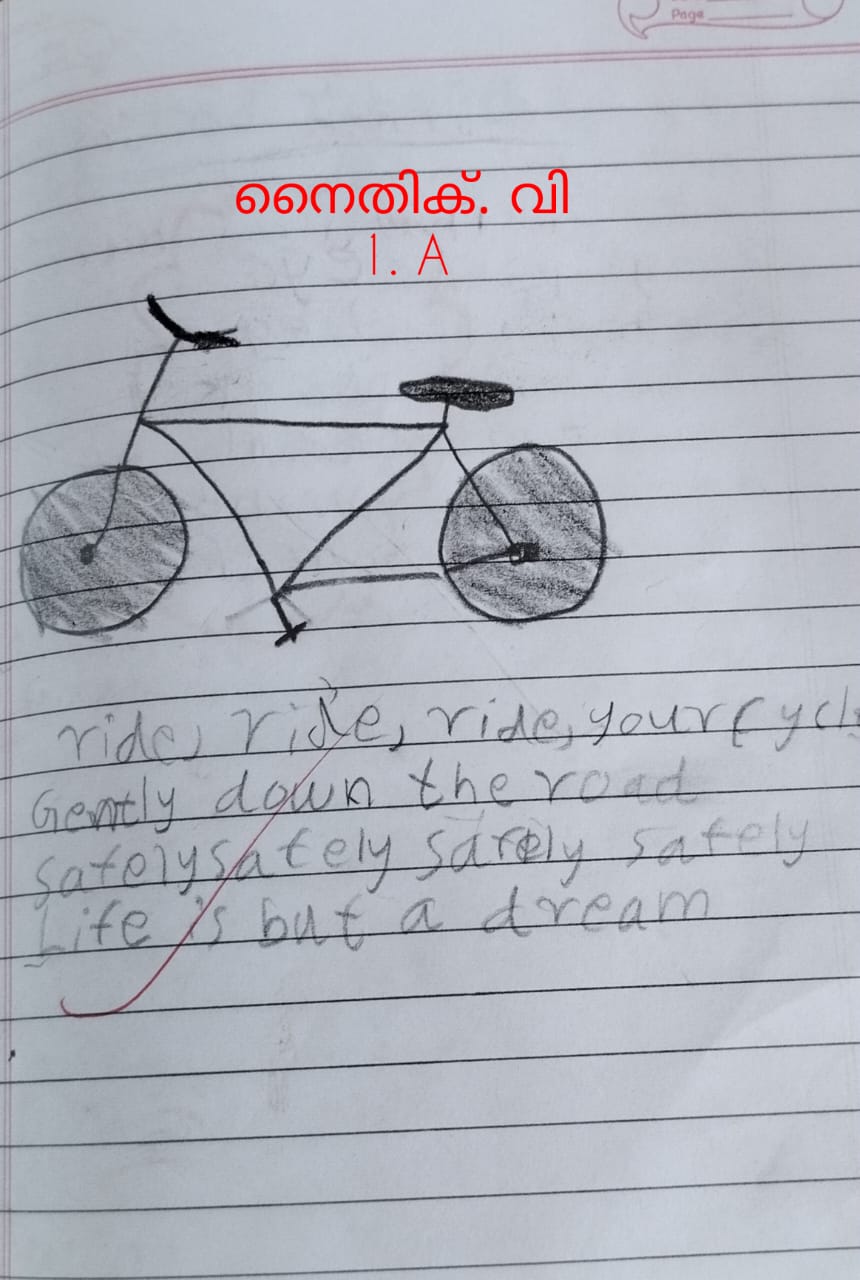 Page
നൈതിക്. വി
1. A
ride, ride, ride, your Cycle
Gently down the road
Safely safely safely safely
Life is but a dream